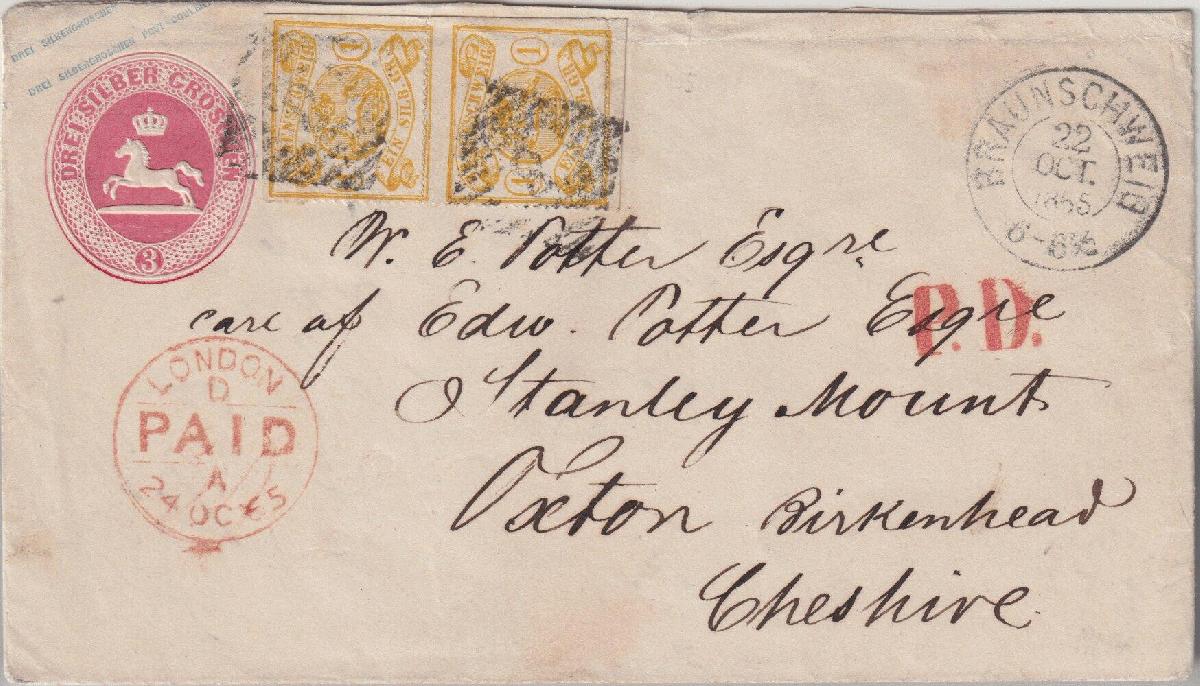 DREI SILBERGROSCHEN
DREI SILBERGROSCHEN POST
DREI SILBER GROSCHEN
3
1
1
EIN SILB. GR.
BRAUNSCHWEIG
22
OCT.
1865
6-6½
W. E. Potter Esqre
care of Edw. Potter Esqre
P.D.
Stanley Mount
Oxton Birkenhead
Cheshire.
LONDON
D
PAID
A
24 OC 65